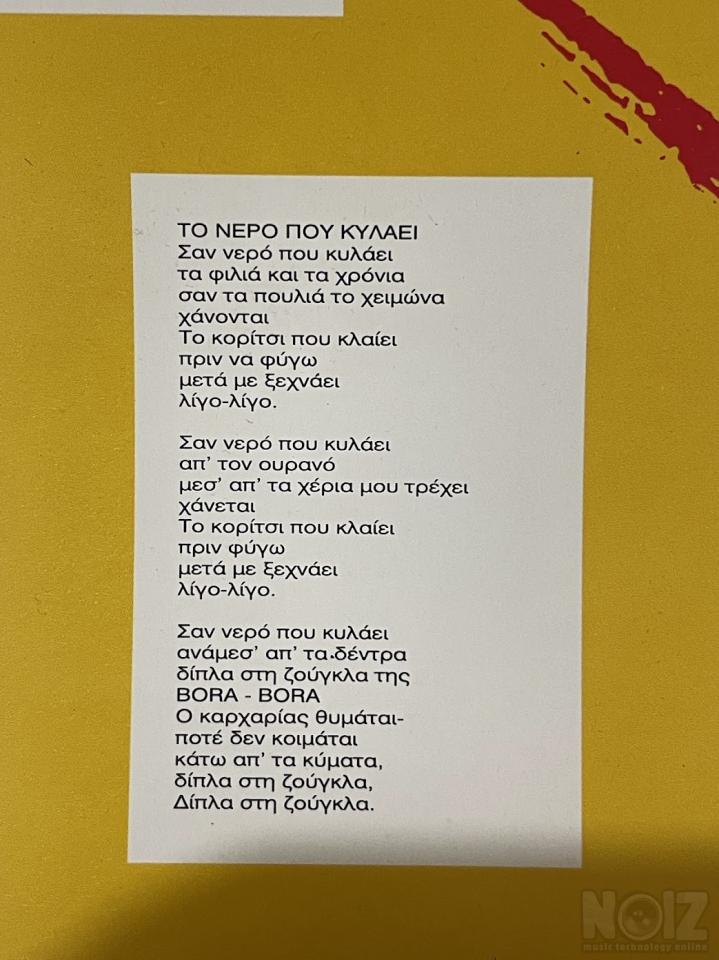 ΤΟ ΝΕΡΟ ΠΟΥ ΚΥΛΑΕΙ
Σαν νερό που κυλάει
τα φιλιά και τα χρόνια
σαν τα πουλιά το χειμώνα
χάνονται
Το κορίτσι που κλαίει
πριν να φύγω
μετά με ξεχνάει
λίγο-λίγο.
Σαν νερό που κυλάει
απ' τον ουρανό
μεσ' απ' τα χέρια μου τρέχει
χάνεται
Το κορίτσι που κλαίει
πριν φύγω
μετά με ξεχνάει
λίγο-λίγο.
Σαν νερό που κυλάει
ανάμεσ' απ' τα δέντρα
δίπλα στη ζούγκλα της
BORA - BORA
Ο καρχαρίας θυμάται-
ποτέ δεν κοιμάται
κάτω απ' τα κύματα,
δίπλα στη ζούγκλα,
Δίπλα στη ζούγκλα.
NOIZ
music technology online